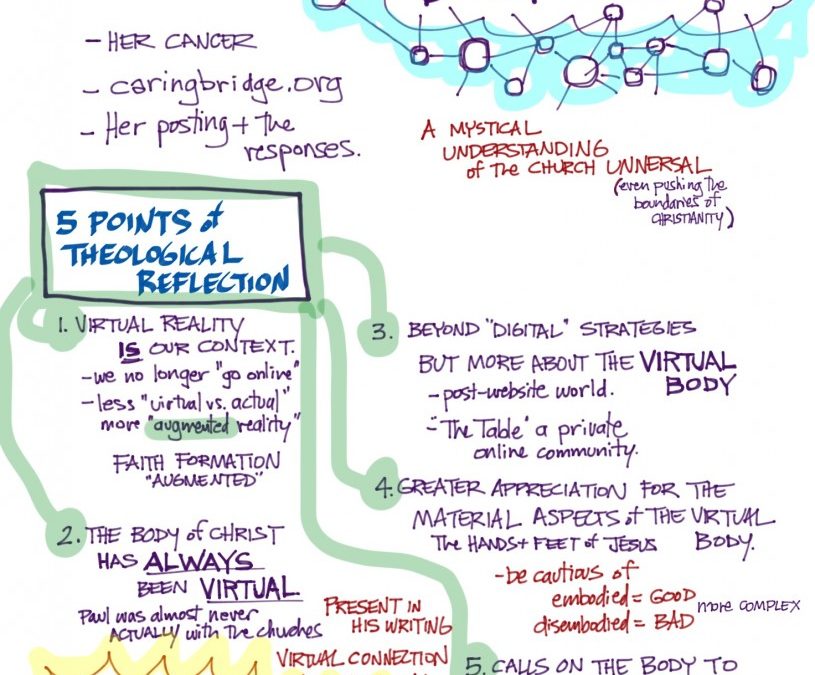 - HER CANCER
- caringbridge.org
- Her posting + The
responses.
A MYSTICAL
UNDERSTANDING
of The CHURCH UNIVERSAL
(even pushing the
boundaries of
CHRISTIANITY)
5 POINTS of
THEOLOGICAL
REFLECTION
1. VIRTUAL REALITY
IS OUR CONTEXT.
- we no longer "go online"
- less "virtual vs. actual"
more "augmented reality"
FAITH FORMATION
"AUGMENTED"
2. THE BODY of CHRIST
HAS ALWAYS
BEEN VIRTUAL
Paul was almost never
ACTUALLY with The churches
PRESENT IN
HIS WRITING
VIRTUAL CONNECTION
3. BEYOND "DIGITAL" STRATEGIES
BUT MORE ABOUT THE VIRTUAL
BODY
- post-website world.
- "The Table" a private
online community.
4. GREATER APPRECIATION FOR THE
MATERIAL ASPECTS of THE VIRTUAL
The HANDS + FEET of JESUS BODY.
- be cautious of
embodied = GOOD
disembodied = BAD
more COMPLEX
5. CALLS ON THE BODY TO